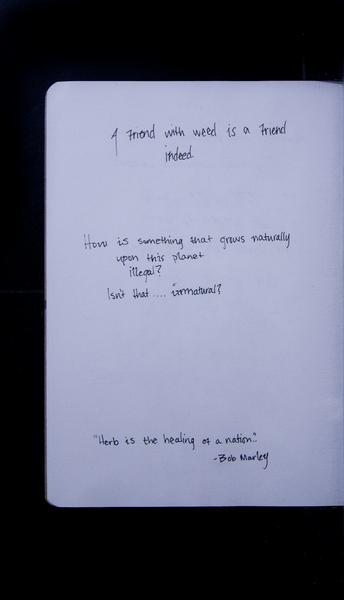 A Friend with weed is a Friend
indeed
How is something that grows naturally
upon this planet
illegal?
Isn't that .... unnatural?
"Herb is the healing of a nation."
-Bob Marley